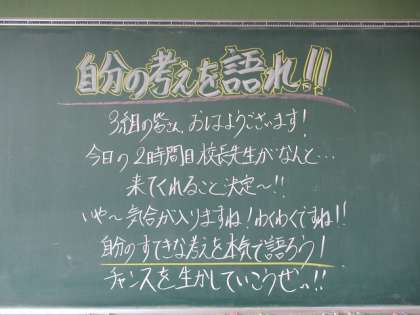 自分の考えを語れ!!
3組の皆さん、おはようございます!
今日の2時間目校長先生がなんと…
来てくれること決定〜!!
いや〜気合が入りますね!わくわくですね!!
自分のすてきな考えを本気で語ろう!
チャンスを生かしていこうぜっ!!